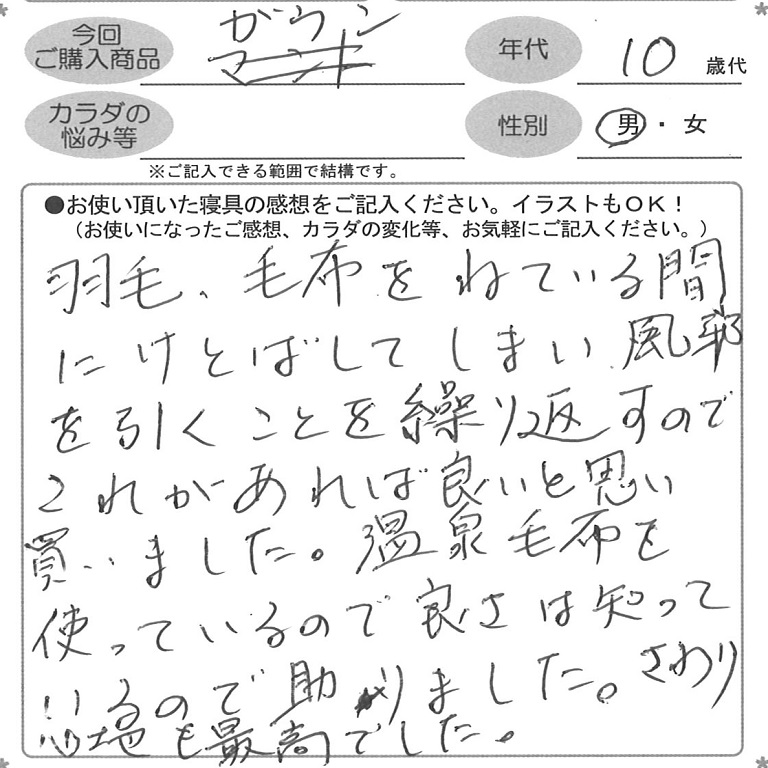 今回
ご購入商品
ガウン
年代
10 歳代
カラダの
悩み等
性別
男・女
※ご記入できる範囲で結構です。
●お使い頂いた寝具の感想をご記入ください。イラストもOK！
（お使いになったご感想、カラダの変化等、お気軽にご記入ください。）
羽毛、毛布をねている間
にけとばしてしまい風邪
を引くことを繰り返すので
これがあれば良いと思い
買いました。温泉毛布を
使っているので良さは知って
いるので助かりました。さわり
心地も最高でした。